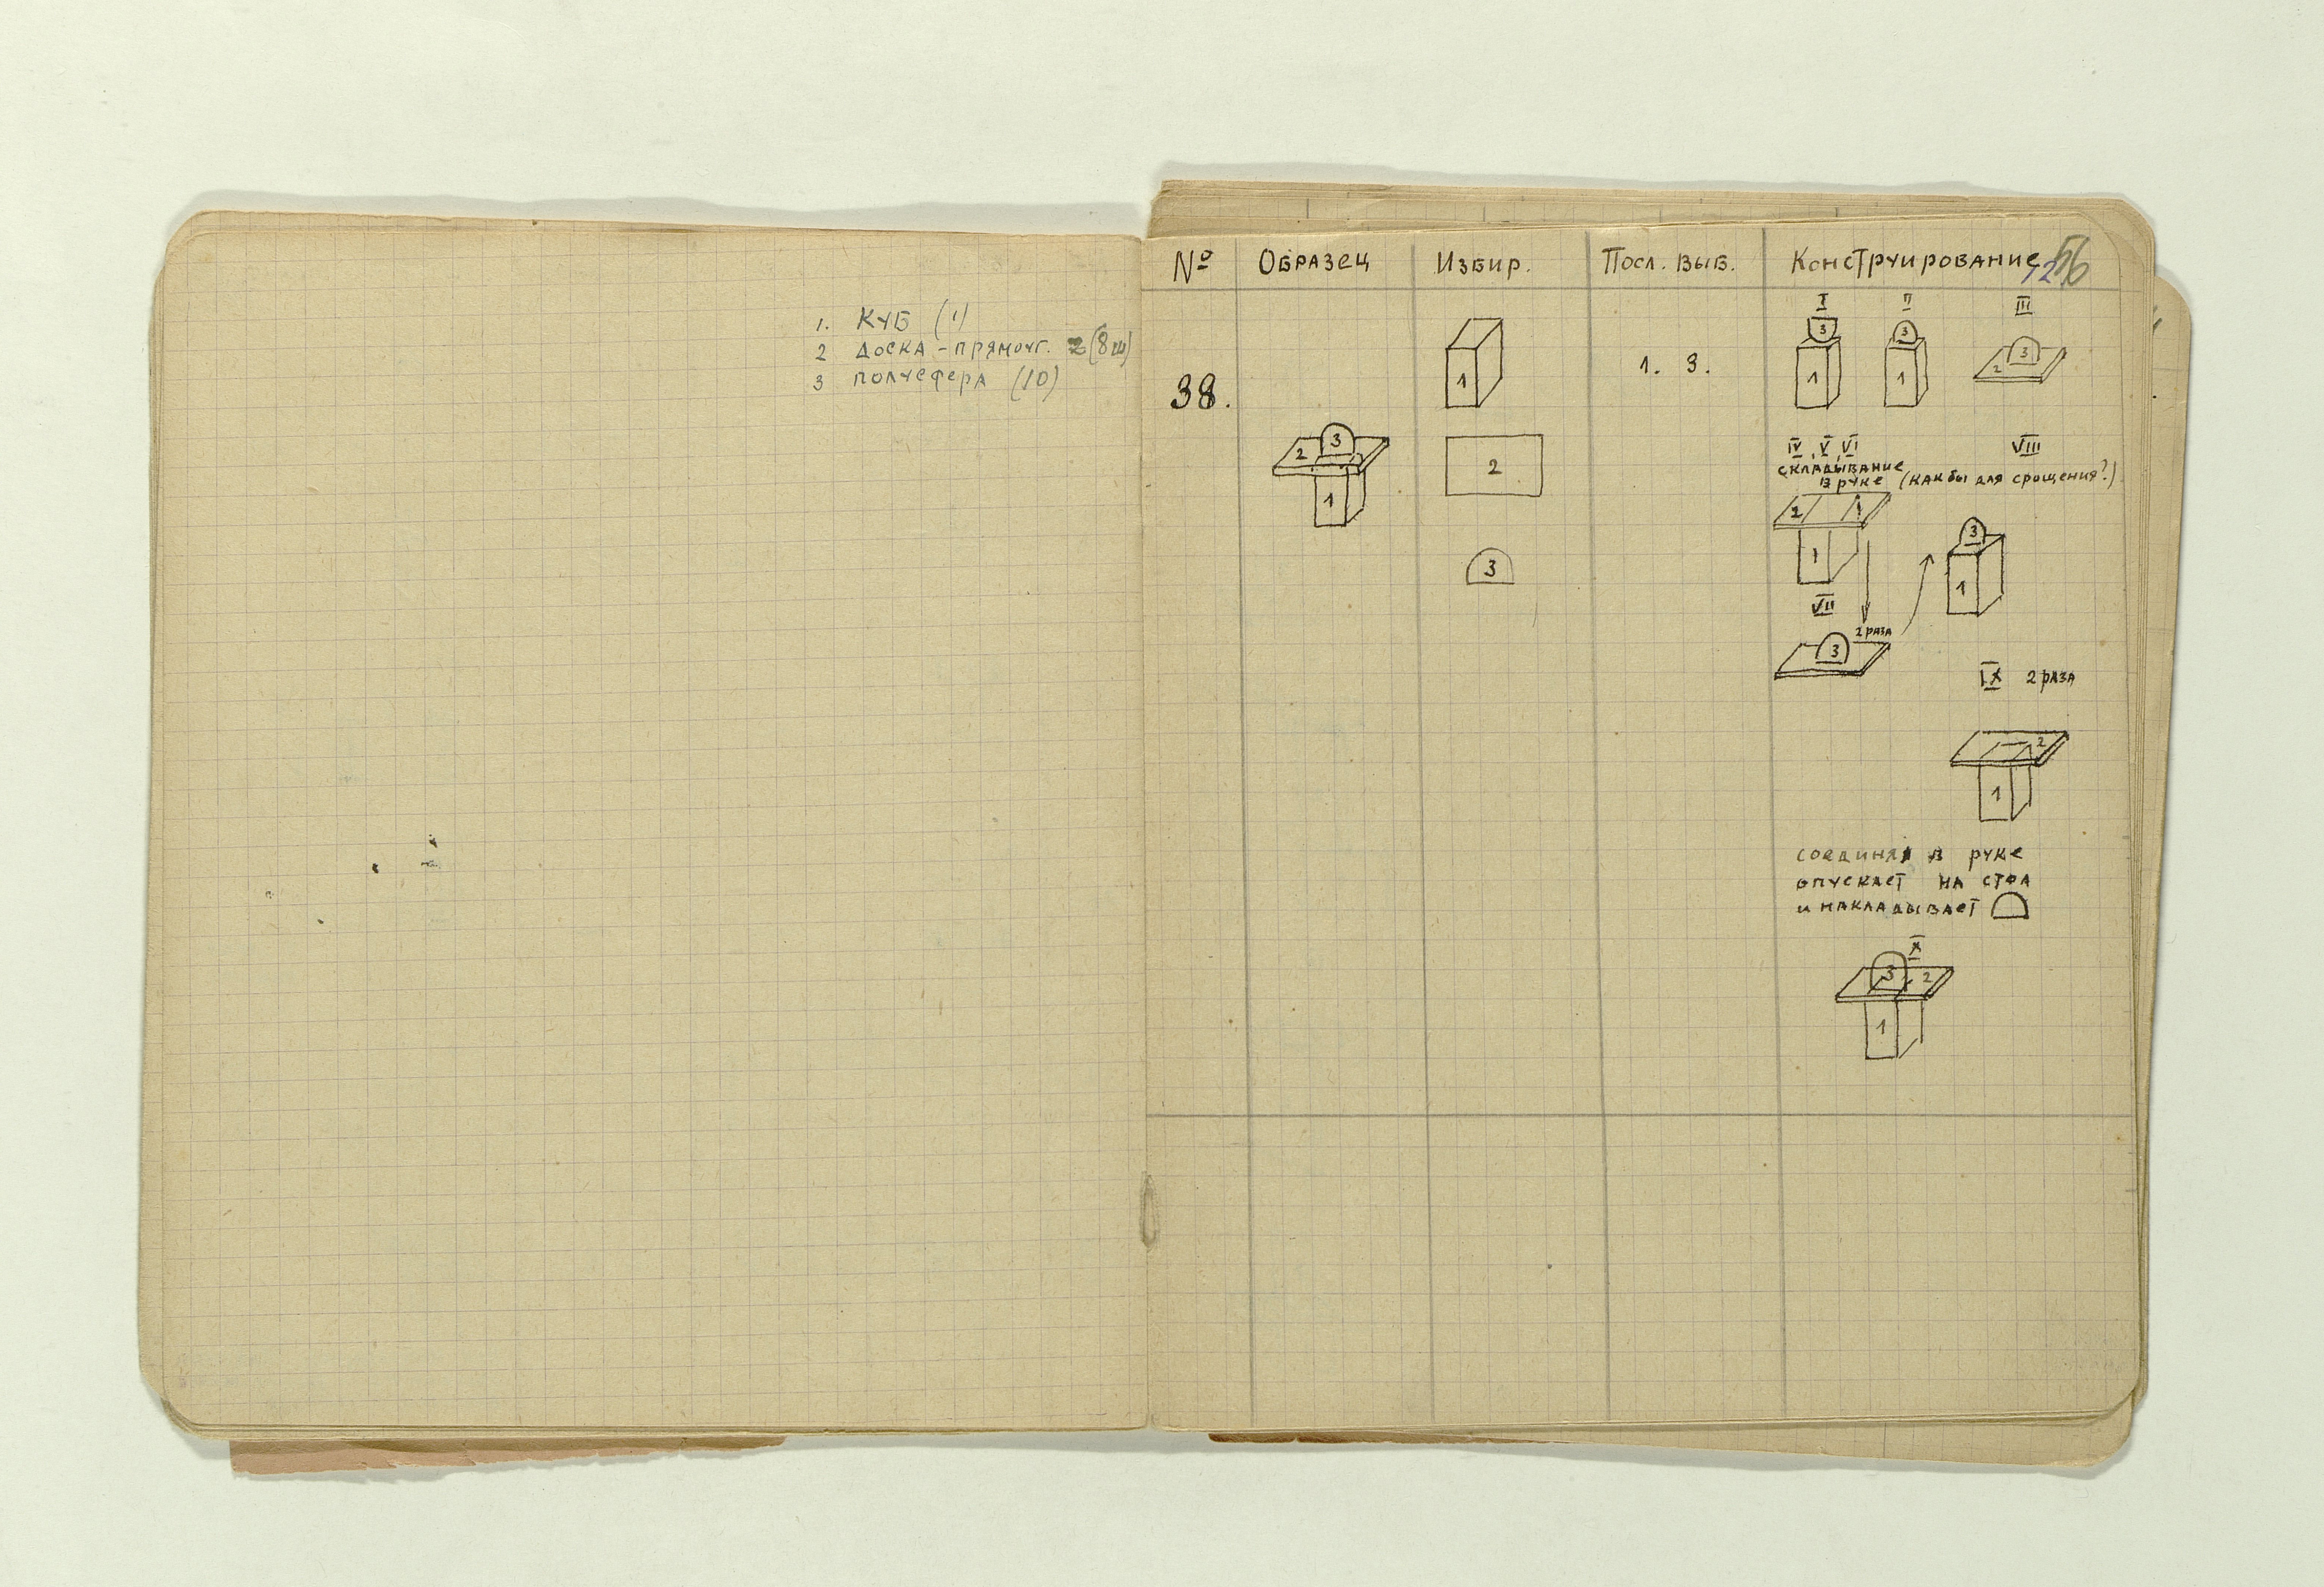 1. КУБ (1)
2 ДОСКА - ПРЯМОУГ. (8 ш)
3 ПОЛУСФЕРА (10)
№ ОБРАЗЕЦ ИЗБИР. ПОСЛ. ВЫБ. КОНСТРУИРОВАНИЕ 56
38.
2 3
1
1
2
3
1. 3.
I II III
3 3 3
1 1 2
IV, V, VI
СКЛАДЫВАНИЕ
В РУКЕ
VIII
(КАК БЫ ДЛЯ СРОЩЕНИЯ?)
2 1
1
3
1
VII
2 РАЗА
3
IX 2 РАЗА
2
1
СОЕДИНЯЯ В РУКЕ
ОПУСКАЕТ НА СТОЛ
И НАКЛАДЫВАЕТ
X
3 2
1